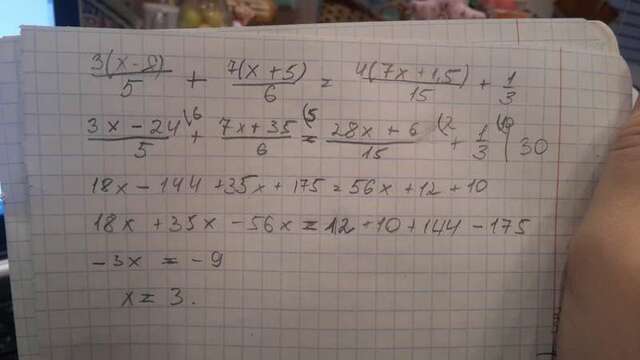 3(x-8)/5 + 7(x+5)/6 = 4(7x+1,5)/15 + 1/3
3x-24/5 \6 + 7x+35/6 (5 = 28x+6/15 (2 + 1/3 (10 | 30
18x - 144 + 35x + 175 = 56x + 12 + 10
18x + 35x - 56x = 12 + 10 + 144 - 175
-3x = -9
x = 3.